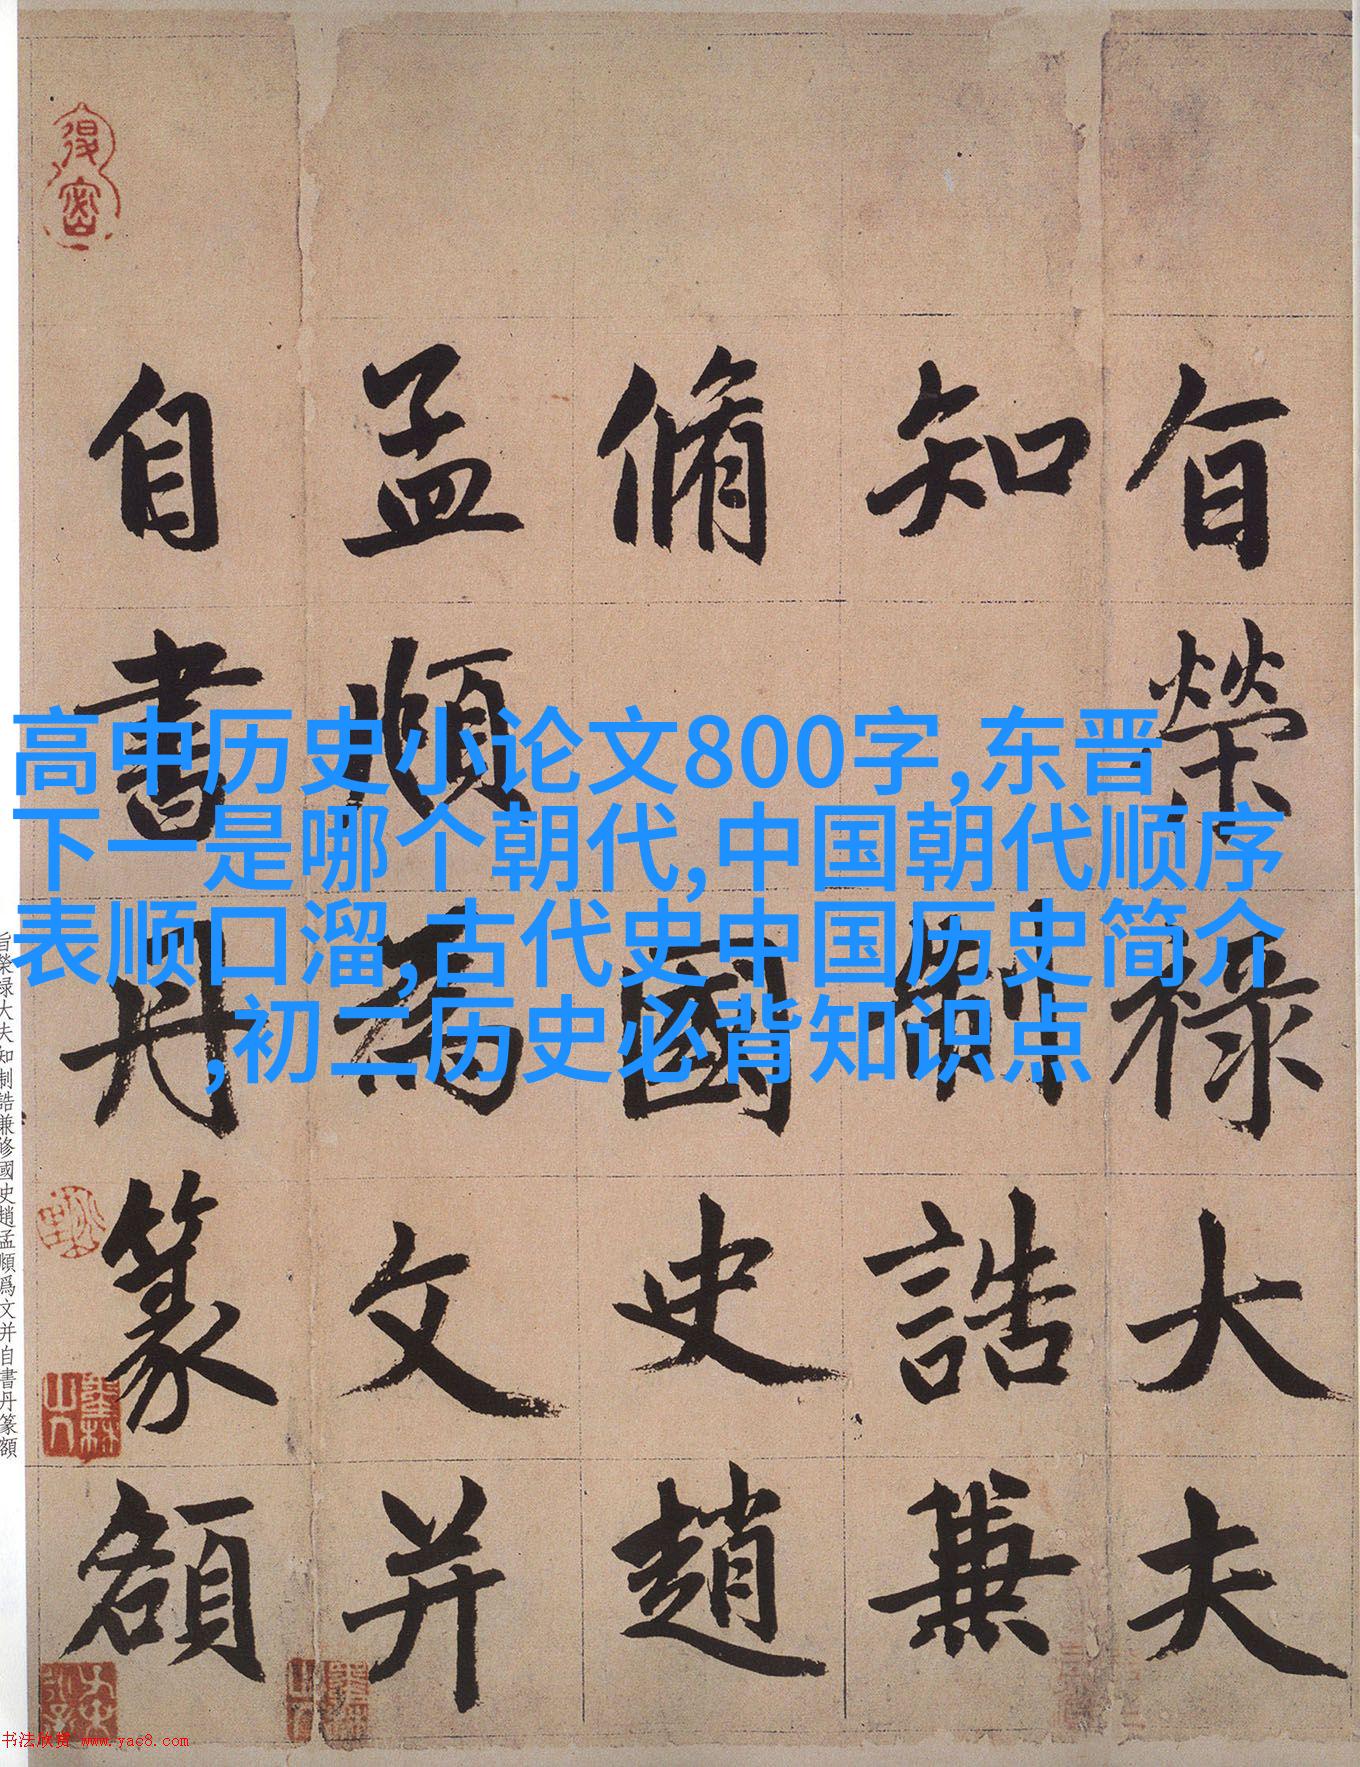 高中历史小论文800字,东晋
下一是哪个朝代,中国朝代顺序
表顺口溜,古代史中国历史简介
,初二历史必背知识点
旨榮禄大夫
知制誥兼
脩國史趙
孟頫為文并
自書丹篆額
旨榮禄大夫知制誥兼修國史趙孟頫爲文并自書丹篆額
书法欣赏 www.yac8.com